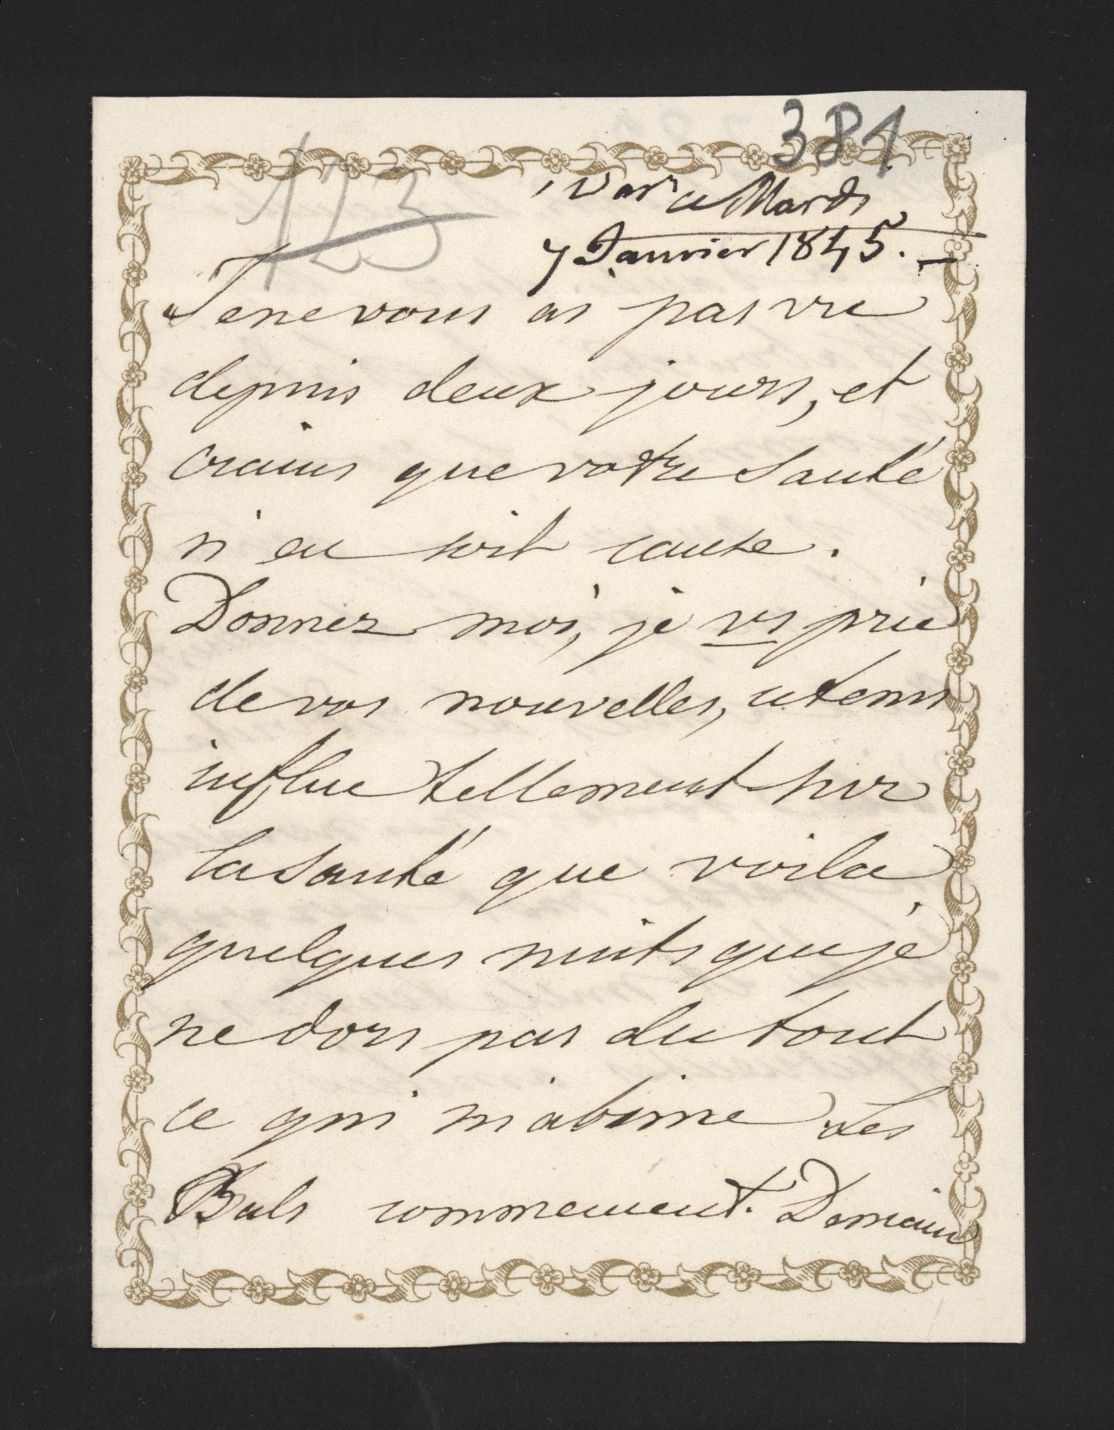 381
123
Var ce Mardi
7 Janvier 1845.
Je ne vous ai pas vu
depuis deux jours, et
crains que votre santé
n'en soit cause.
Donnez moi, je vs prie
de vos nouvelles, ce tems
influe tellement sur
la santé que voila
quelques nuits que je
ne dors pas du tout
ce qui m'abime Les
Bals commencent. Demain